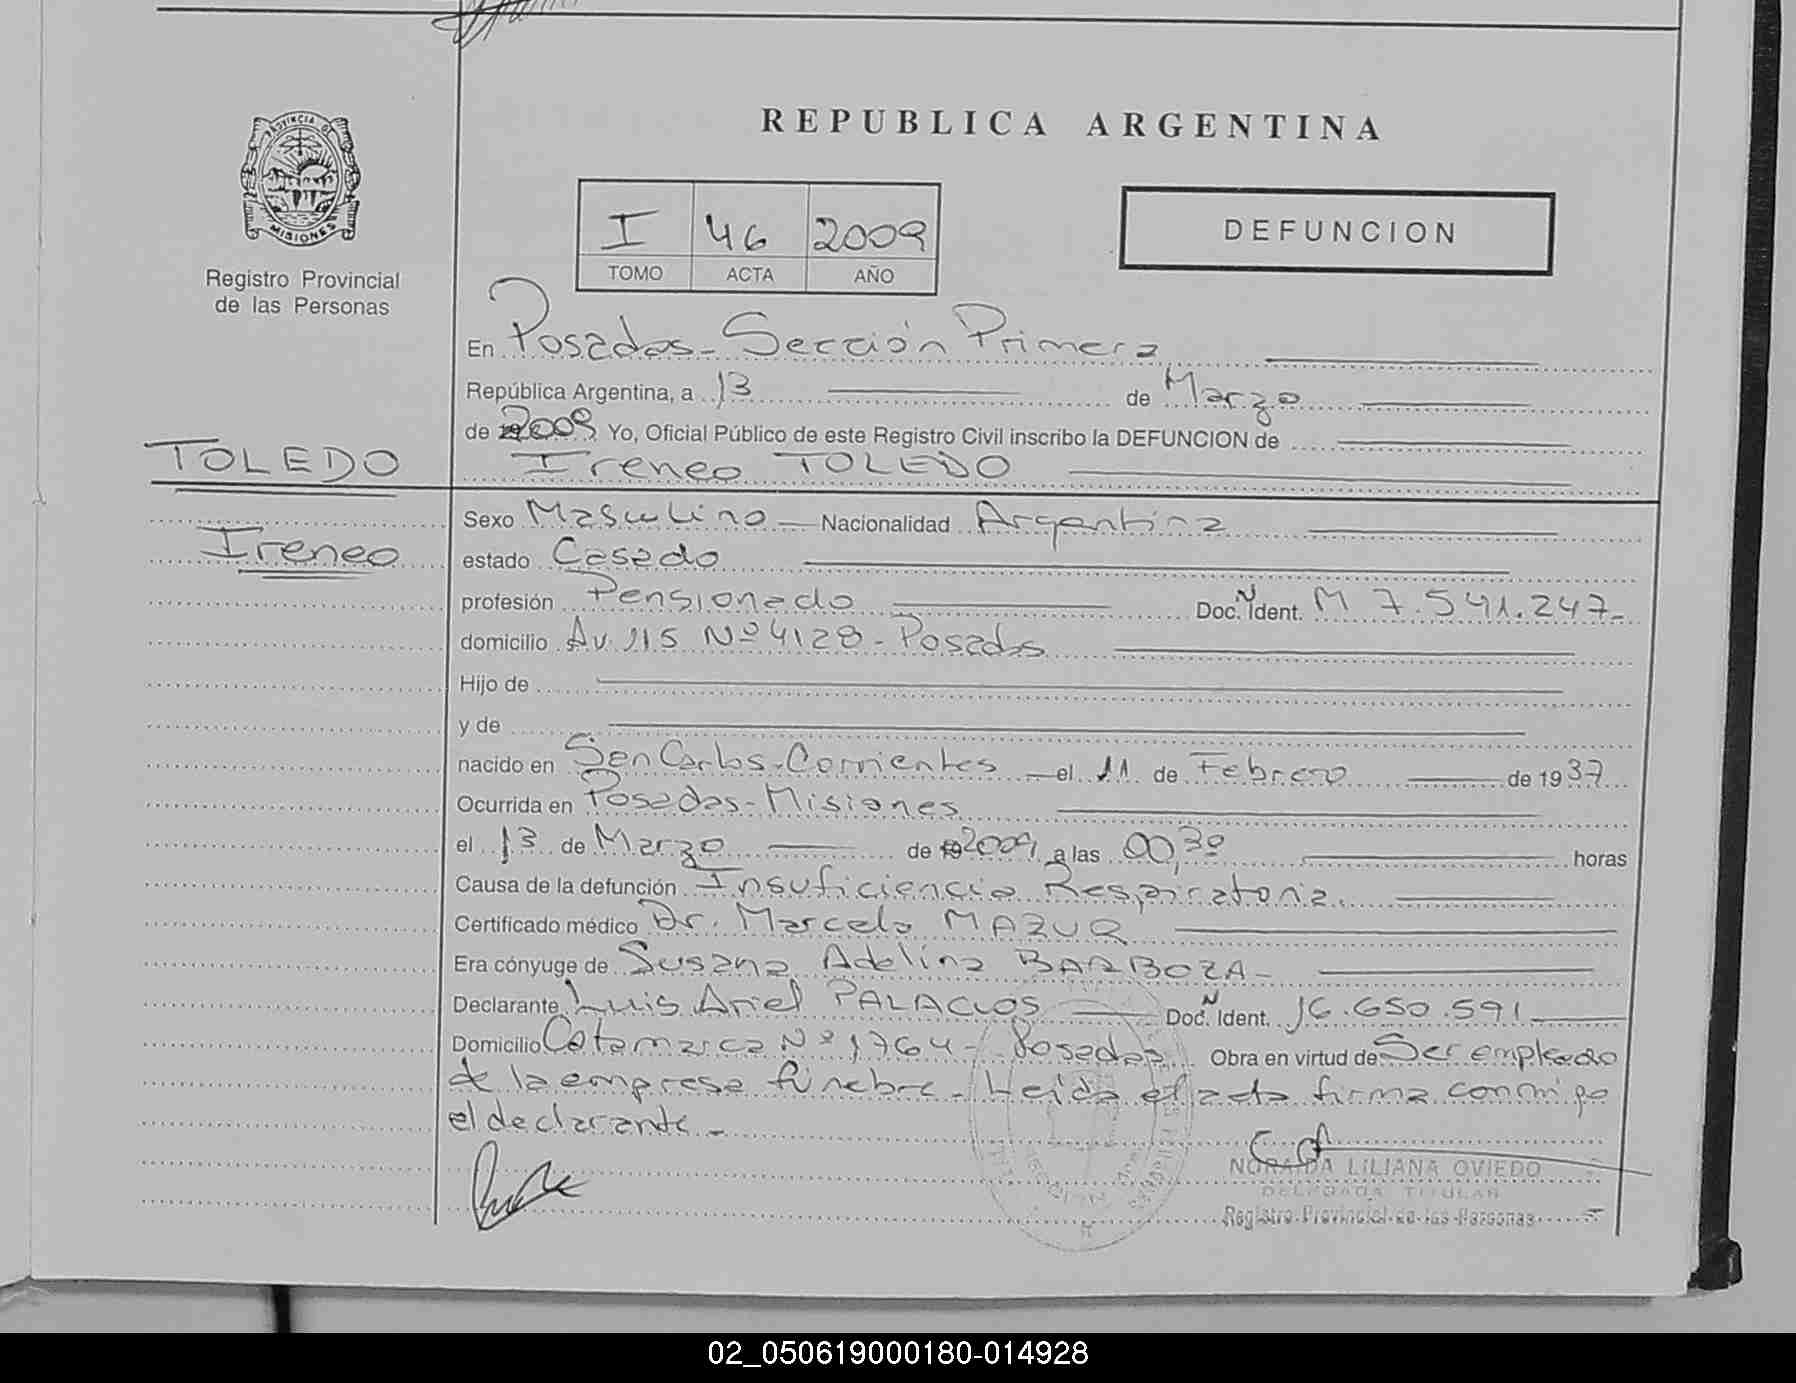 PROVINCIA DE
MISIONES
Registro Provincial
de las Personas
REPUBLICA ARGENTINA
I 46 2009
TOMO ACTA AÑO
DEFUNCION
En Posadas - Sección Primera
República Argentina, a 13 de Marzo
de 2009 Yo, Oficial Público de este Registro Civil inscribo la DEFUNCION de
TOLEDO
Ireneo TOLEDO
Ireneo
Sexo Masculino Nacionalidad Argentina
estado Casado
profesión Pensionado Doc. N Ident. M 7.541.247-
domicilio Av. 115 Nº 4128 - Posadas
Hijo de
y de
nacido en San Carlos - Corrientes el 11 de Febrero de 1937
Ocurrida en Posadas - Misiones
el 13 de Marzo de 2009 a las 00,30 horas
Causa de la defunción Insuficiencia Respiratoria.
Certificado médico Dr. Marcelo MAZUR
Era cónyuge de Susana Adelina BARBOZA -
Declarante Luis Ariel PALACIOS Doc. N Ident. 16.650.591
Domicilio Catamarca Nº 1764 - Posadas Obra en virtud de Ser empleado
de la empresa fúnebre - Leida el acta firma conmigo
el declarante -
NORAIDA LILIANA OVIEDO
DELEGADA TITULAR
Registro Provincial de las Personas
02_050619000180-014928